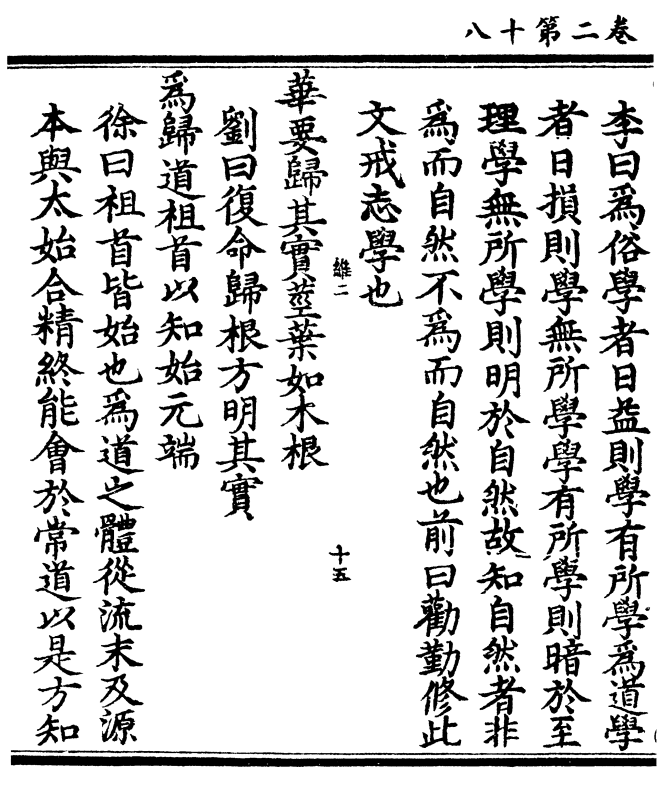 卷二第十八
李曰爲俗學者日益則學有所學爲道學
者日損則學無所學學有所學則暗於至
理學無所學則明於自然故知自然者非
爲而自然不爲而自然也前曰勸勤修此
文戒志學也
維二
十五
華要歸其實莖葉如木根
劉曰復命歸根方明其實
爲歸道祖首以知始元端
徐曰祖首皆始也爲道之體從流末及源
本與太始合精終能會於常道以是方知